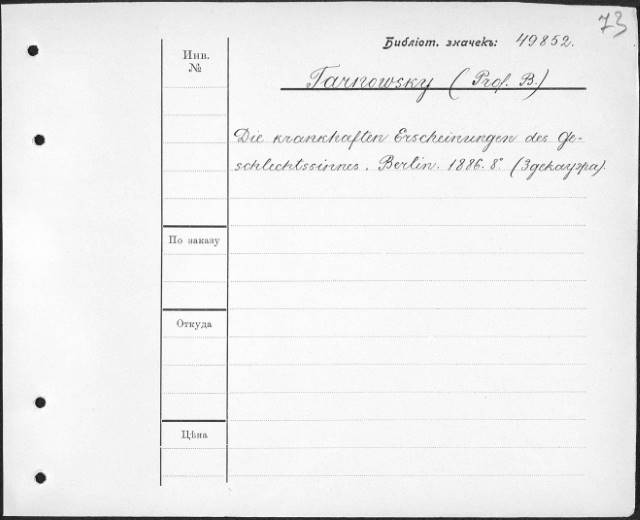 73
Библіот. значекъ: 49852.
Инв.
№
Tarnowsky (Prof. B.)
Die krankhaften Erscheinungen des Ge-
schlechtssinnes. Berlin. 1886. 8°. (Здекауэра).
По заказу
Откуда
Цѣна